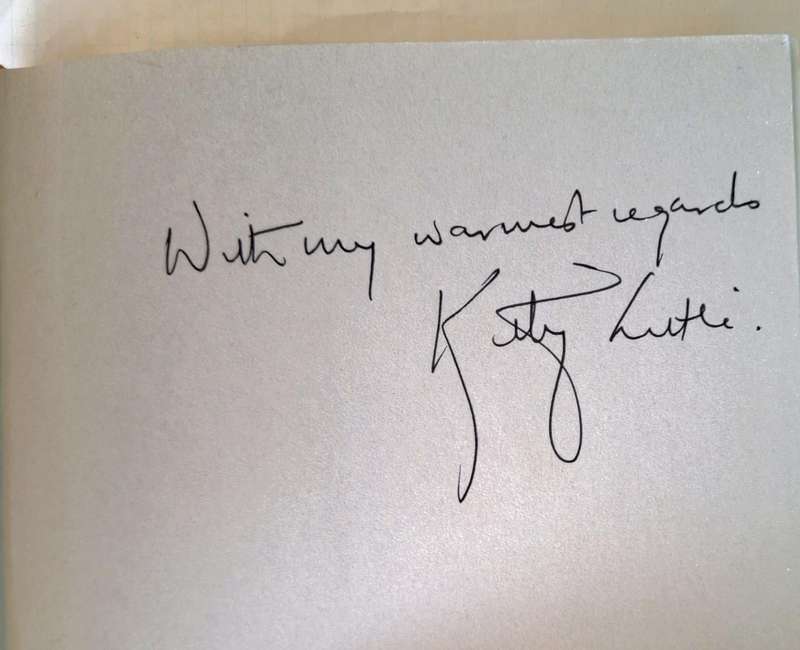 With my warmest regards
Kitty Luthi.